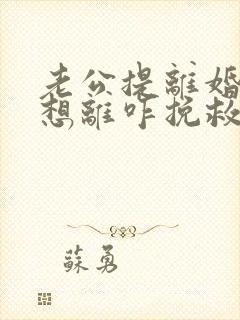 老公提離婚
想離咋挽救
蘇勇